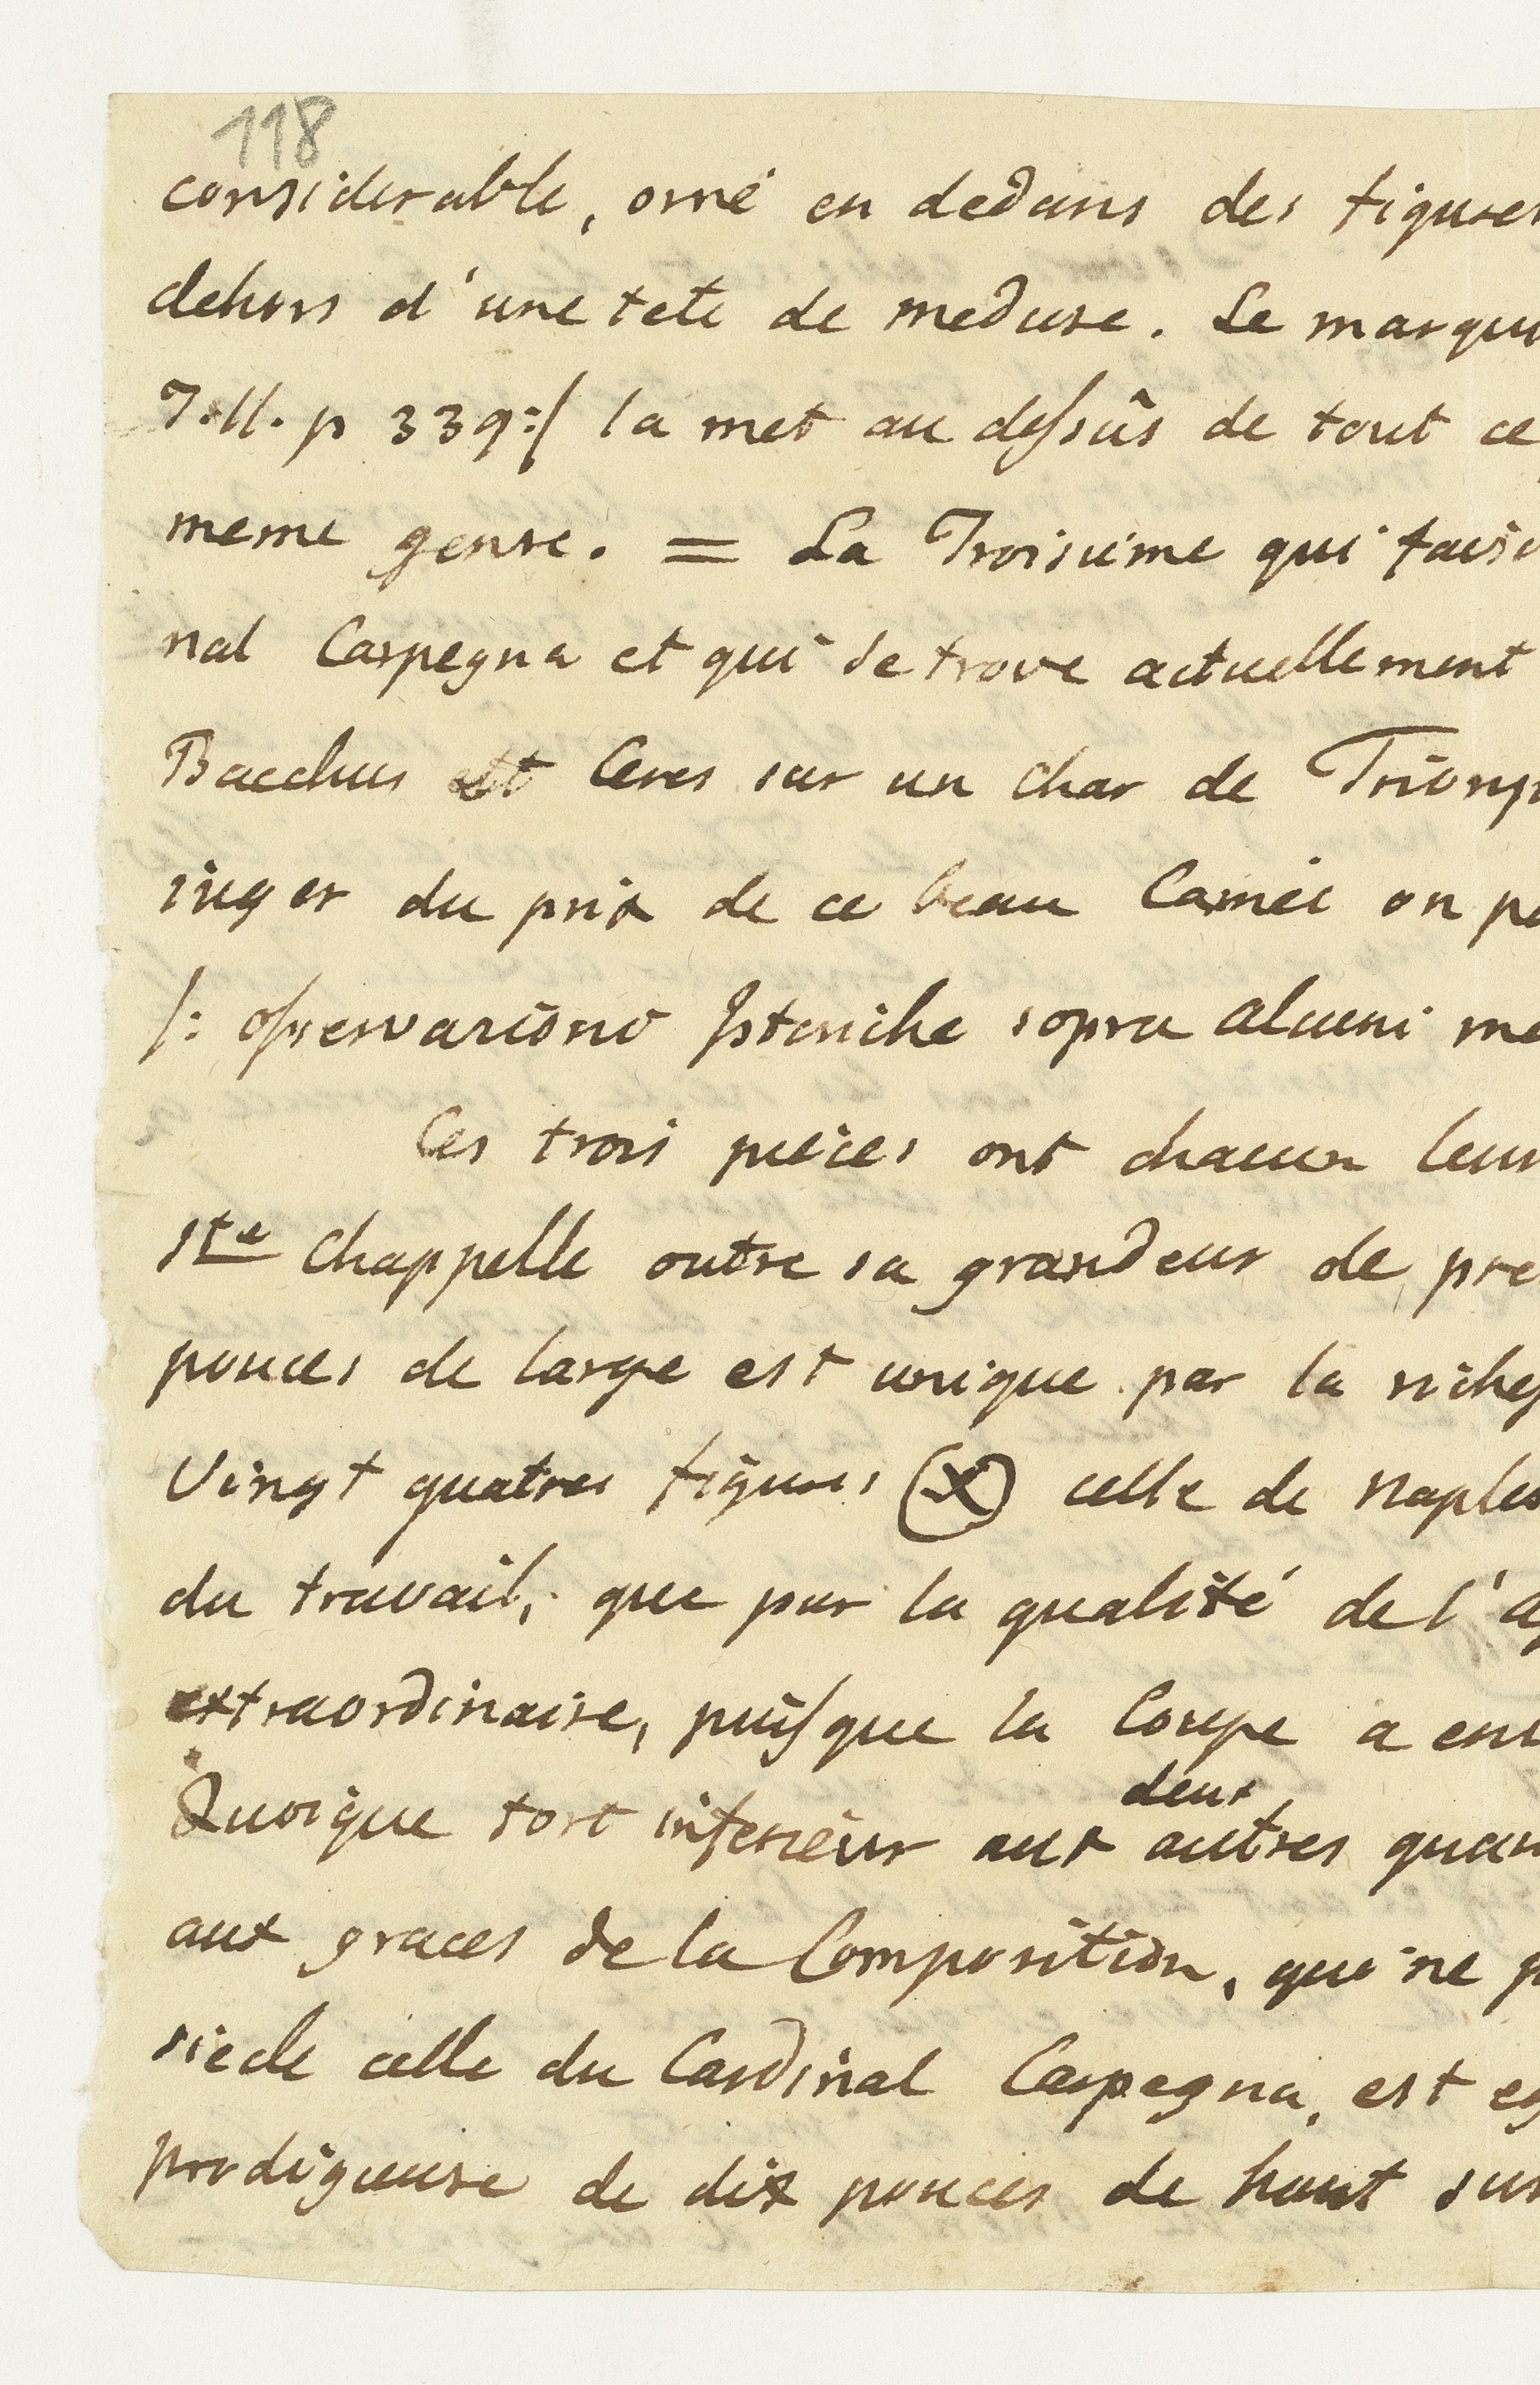 118
considerable, orné en dedans des figures
dehors d'une tete de meduse. Le marqui
T. II. p 339:/ la met au dessûs de tout ce
meme genre. = La Troisieme qui faisi
nal Carpegna et qui se trove actuellement
Bacchus et Ceres sur un Char de Triomp
iuger du prix de ce beau Camée on pe
/: osservarione Istoriche sopra alcuni me
Ces trois pieces ont chacun leur
Ste Chappelle outre sa grandeur de pre
pouces de large est unique par la riches
Vingt quatres figures (X) celle de Naples
du travail, que par la qualité de l'ag
extraordinaire, puisque la Coupe a env
deux
Quoique fort inferieur aux autres quan
aux graces de la Composition, qui ne p
siecle celle du Cardinal Carpegna, est eg
prodigieuse de dix pouces de haut sur